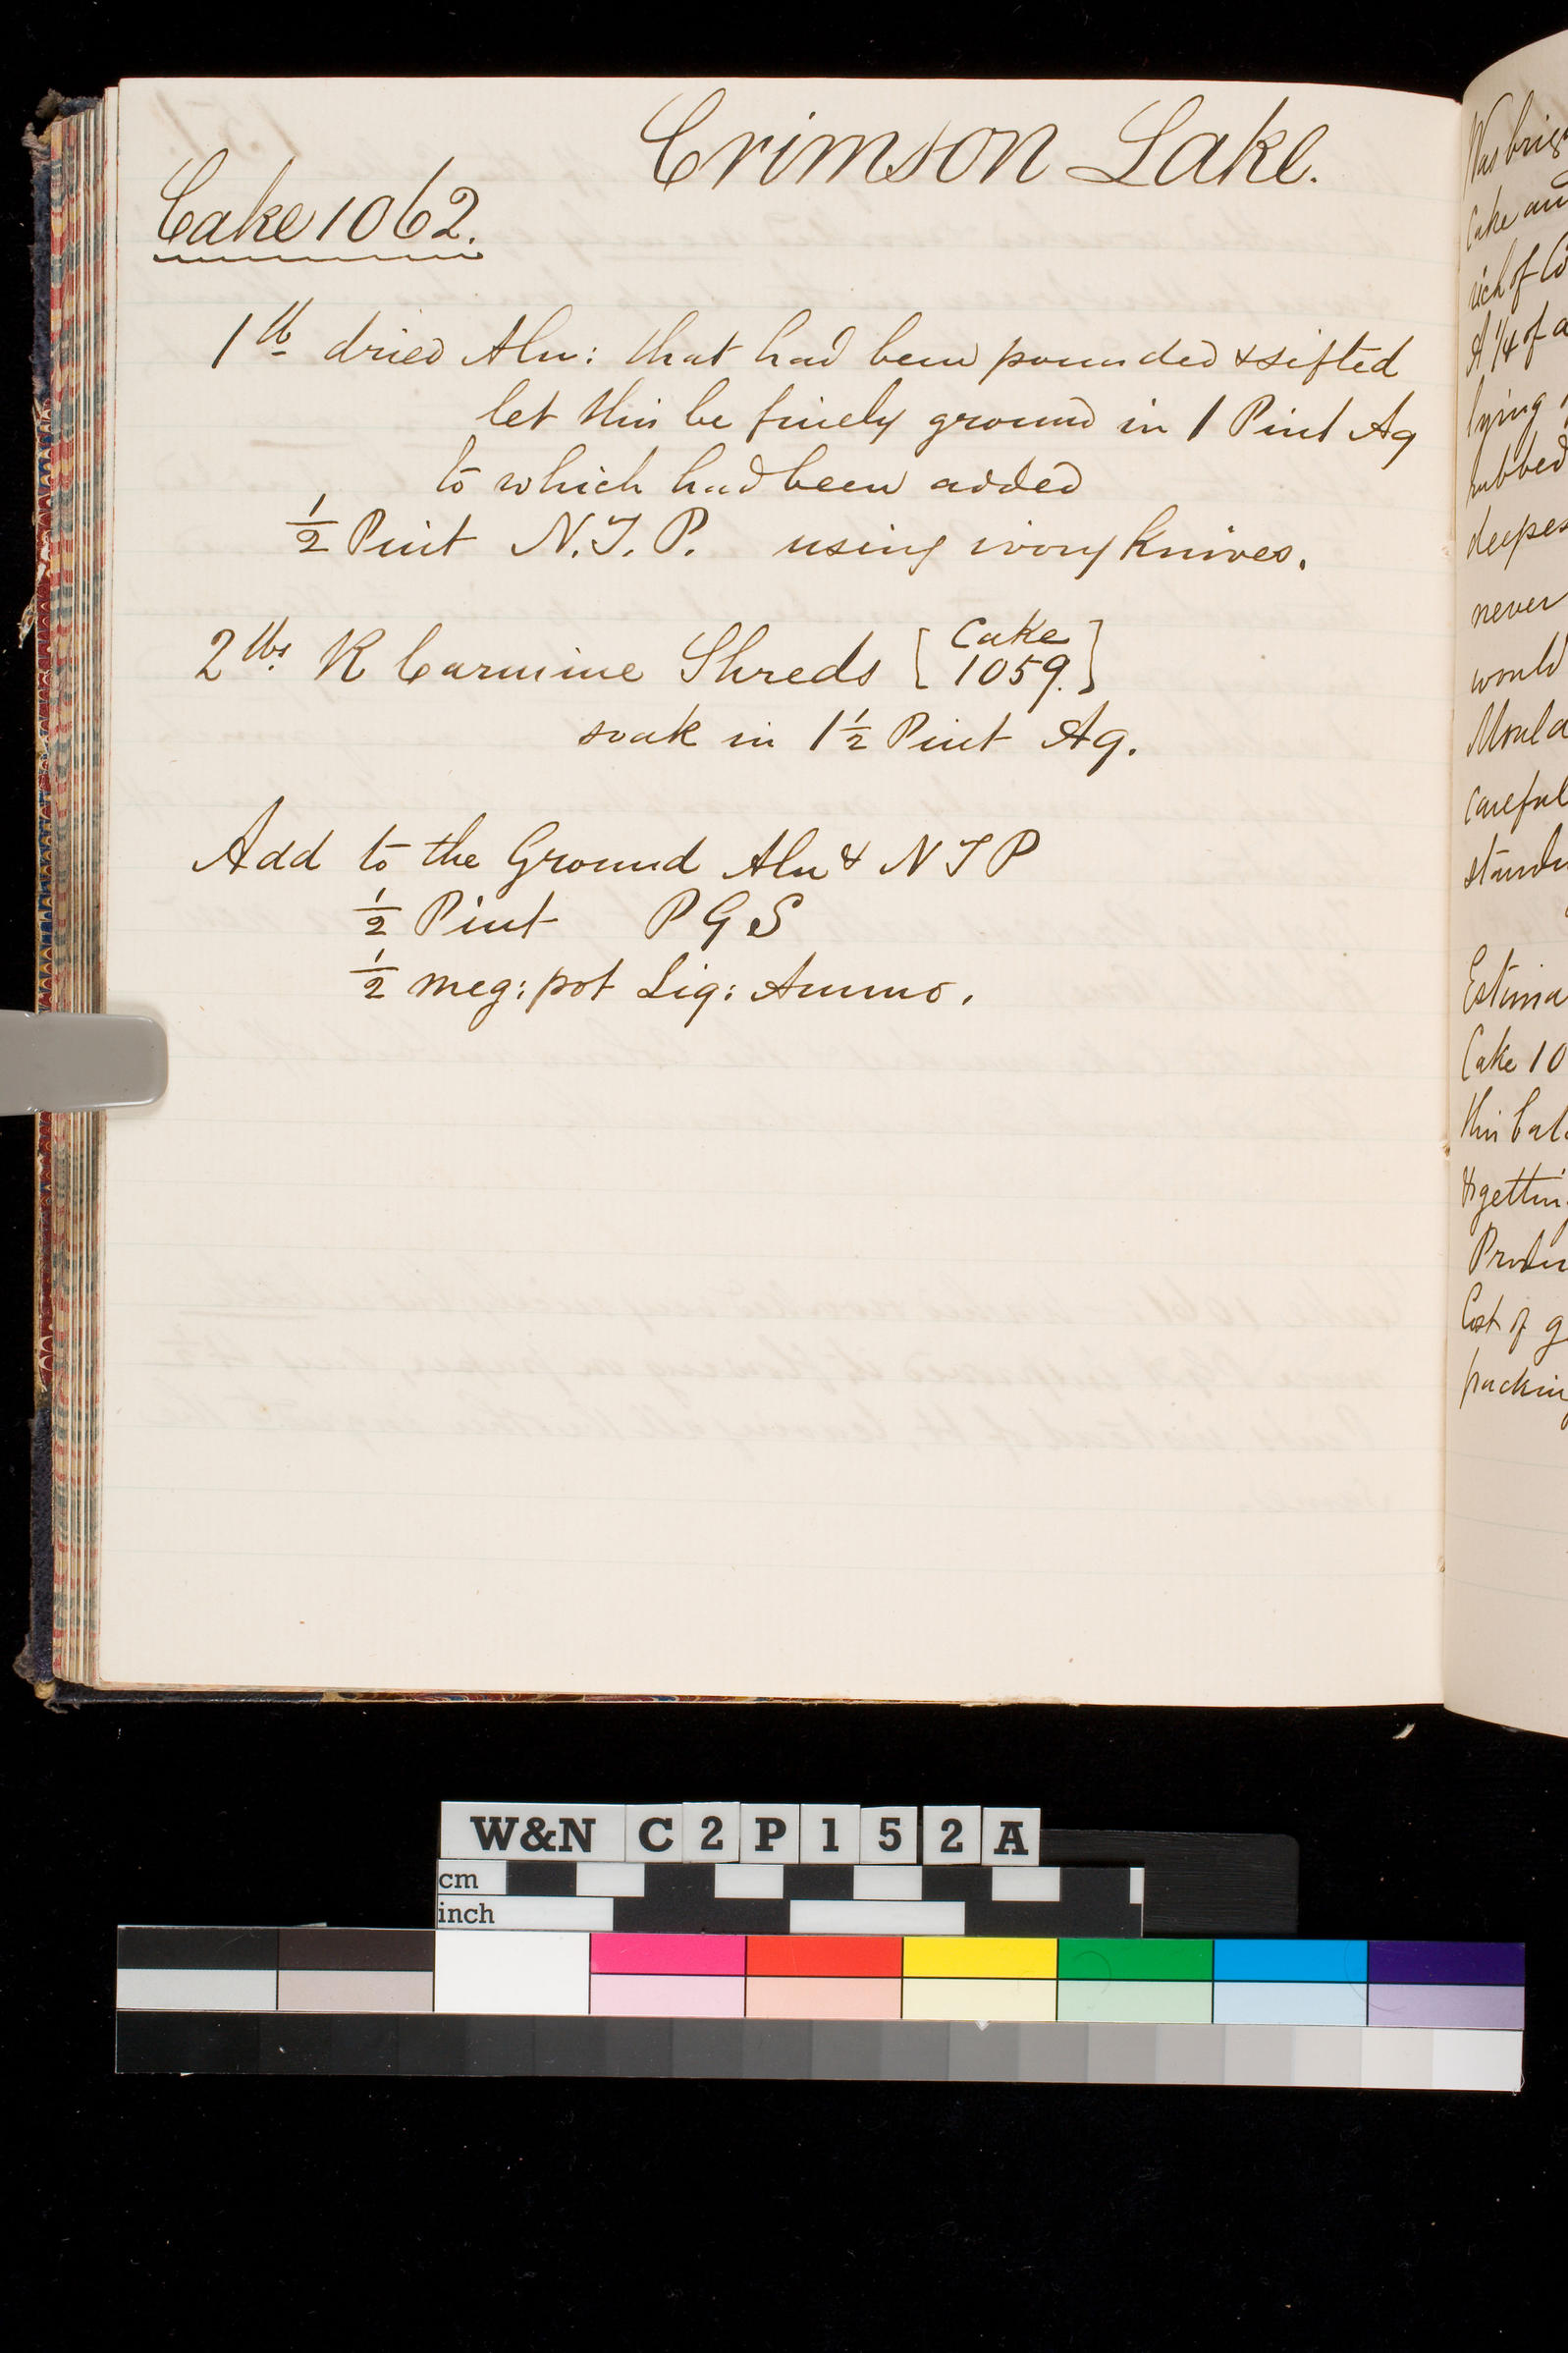 Crimson Lake.
Cake 1062.
1 lb dried Alu: that had been pounded & sifted
let this be finely ground in 1 Pint Aq
to which had been added
½ Pint N.T.P. using ivory knives.
2 lbs R Carmine Shreds [Cake 1059.]
soak in 1½ Pint Aq.
Add to the Ground Alu & N T P
½ Pint P G S
½ meg: pot Liq: Ammo.
Was brig
Cake an
rich of Co
A ¼ of a
lying
rubbed
deepes
never
would
Mould
careful
stand
Estima
Cake 10
this Cak
& gettin
Produ
Cost of g
packing
W&N C2P152A
cm
inch